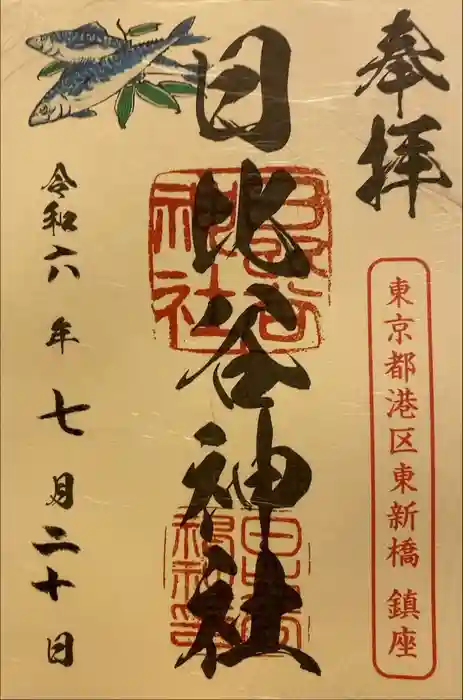 奉拝
東京都港区東新橋 鎮座
日比谷神社
令和六年七月二十日